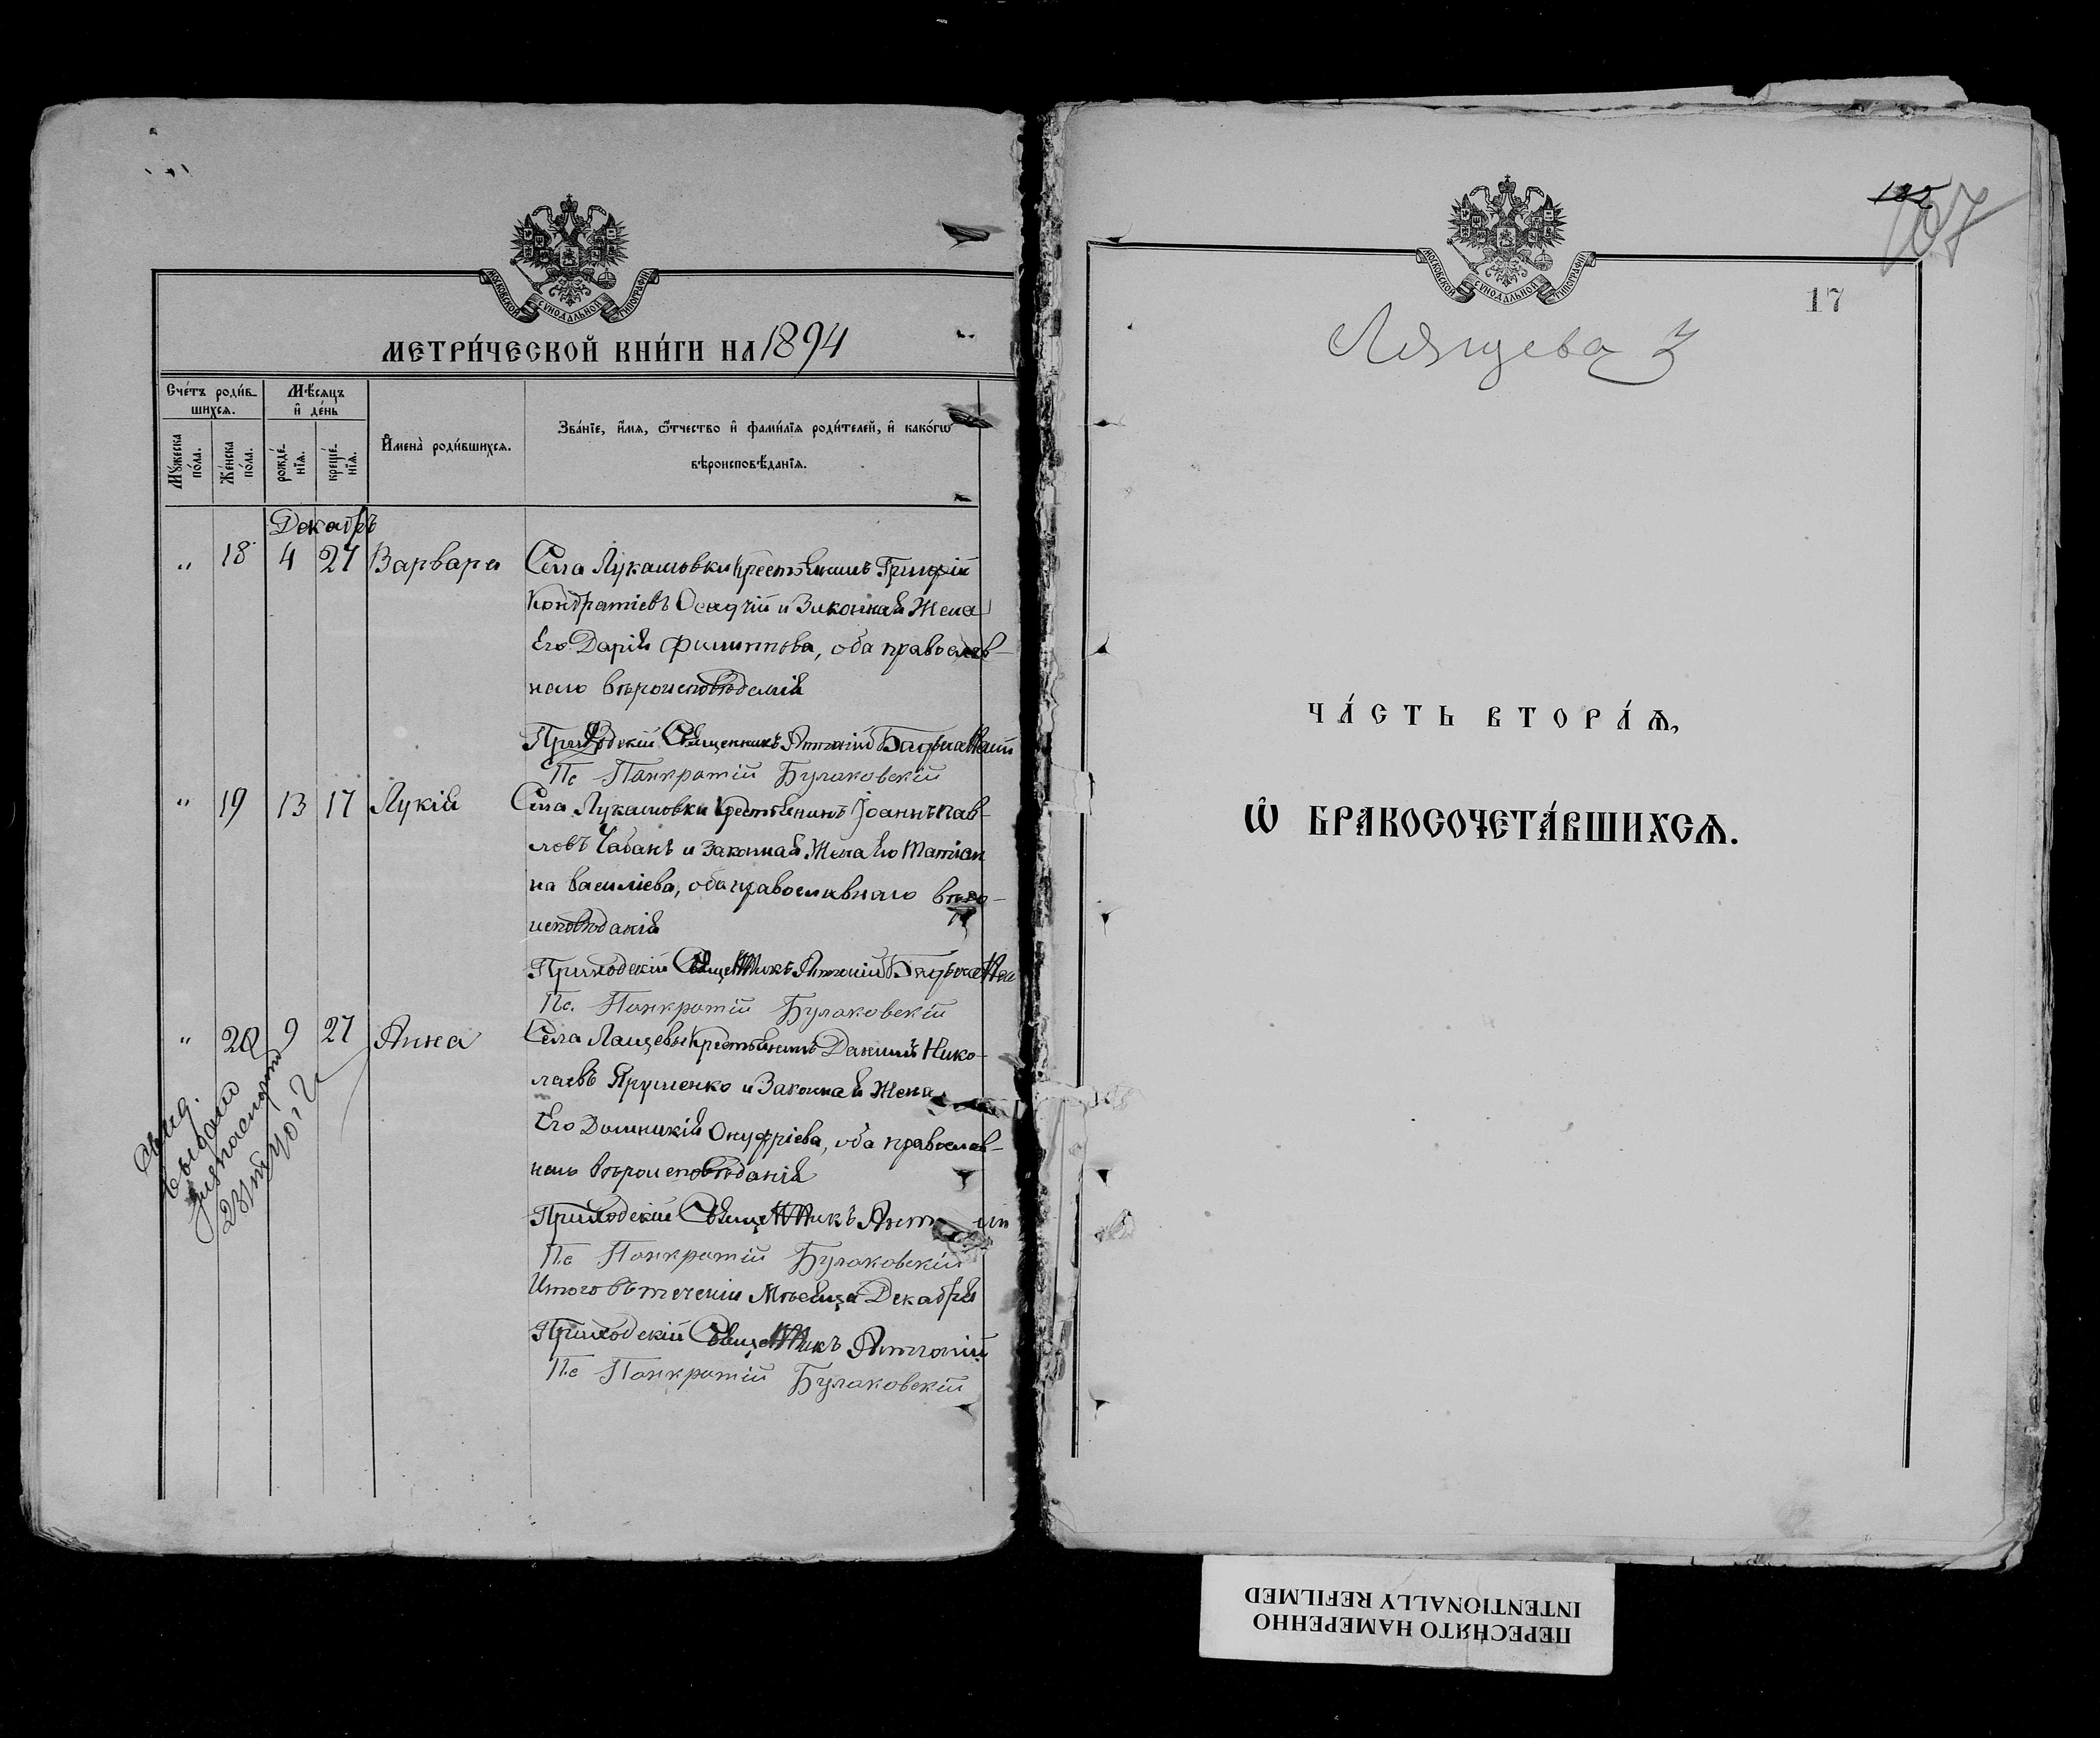 МОСКОВСКОЙ СѴНОДАЛЬНОЙ ТИПОГРАФІИ
МЕТРИ́ЧЕСКОЙ КНИ́ГИ НА 1894
Сче́тъ роди́в-
шихсѧ.
Мѣ́сѧцъ
и҆ де́нь
Мꙋ́жеска
по́ла.
Же́нска
по́ла.
рожде́-
нїѧ.
креще́-
нїѧ.
И҆мена̀ роди́вшихсѧ.
Зва́нїе, и҆́мѧ, ѻ҆́тчество и҆ фами́лїѧ роди́телей, и҆ како́гѡ
вѣроисповѣ́данїѧ.
Декабрь
" 18 4 27 Варвара Села Лукашовки Крестьянинъ
Кондратіевъ Осадчій и Законная Жена
Его Дарія Филиппова, оба православ-
наго вѣроисповѣданія
Приходскій Священникъ Антоній
Пс Панкратій Булаковскій
" 19 13 17 Лукія Села Лукашовки Крестьянинъ Іоаннъ Пав-
ловъ Чабанъ и Законная Жена Его Татіан
на Василіева, оба православнаго вѣро-
исповѣданія
Приходскій Священникъ Антоній
Пс. Панкратій Булаковскій
" 20 9 27 Анна Села Лащевы Крестьянинъ Даніилъ Нико-
лаевъ Ярушенко и Законная Жена
Его Домникія Онуфріева, оба православ-
наго вѣроисповѣданія
Приходскій Священникъ
Пс Панкратій Булаковскій
Итого въ теченіи Мѣсяца Декабря
Приходскій Священникъ Антоній
Пс Панкратій Булаковскій
МОСКОВСКОЙ СѴНОДАЛЬНОЙ ТИПОГРАФІИ
182
107
17
Лящева 3
ЧА́СТЬ ВТОРА́Ѧ,
Ѽ БРАКОСОЧЕТА́ВШИХСѦ.
ПЕРЕСНЯТО НАМЕРЕННО
INTENTIONALLY REFILMED